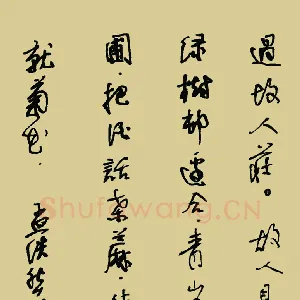 過故人莊。故人具
綠樹邨邊合青山
圃·把酒話桑麻·待
就菊花·孟浩然
Shufawang.CN